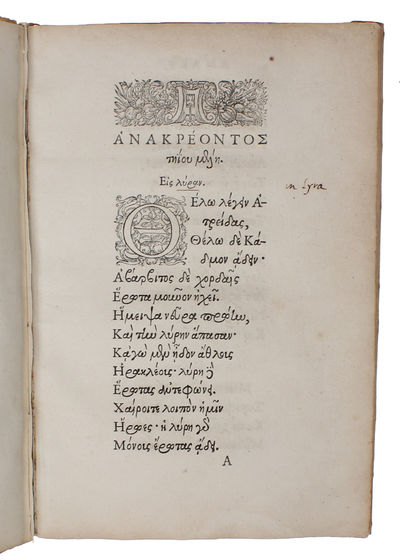 ἈΝΑΚΡΈΟΝΤΟΣ
τηίου μέλη.
Εἰς λύραν.
in Lyra
Θέλω λέγειν Ἀ-
τρείδας,
Θέλω δὲ Κά-
δμον ᾄδειν·
Ἁ βάρβιτος δὲ χορδαῖς
Ἔρωτα μοῦνον ἠχεῖ.
Ἤμειψα νεῦρα πρώην,
Καὶ τὴν λύρην ἅπασαν·
Κἀγὼ μὲν ᾖδον ἄθλους
Ἡρακλέους· λύρη δὲ
Ἔρωτας ἀντεφώνει.
Χαίροιτε λοιπὸν ἡμῖν
Ἥρωες· ἡ λύρη γὰρ
Μόνους ἔρωτας ᾄδει.
A